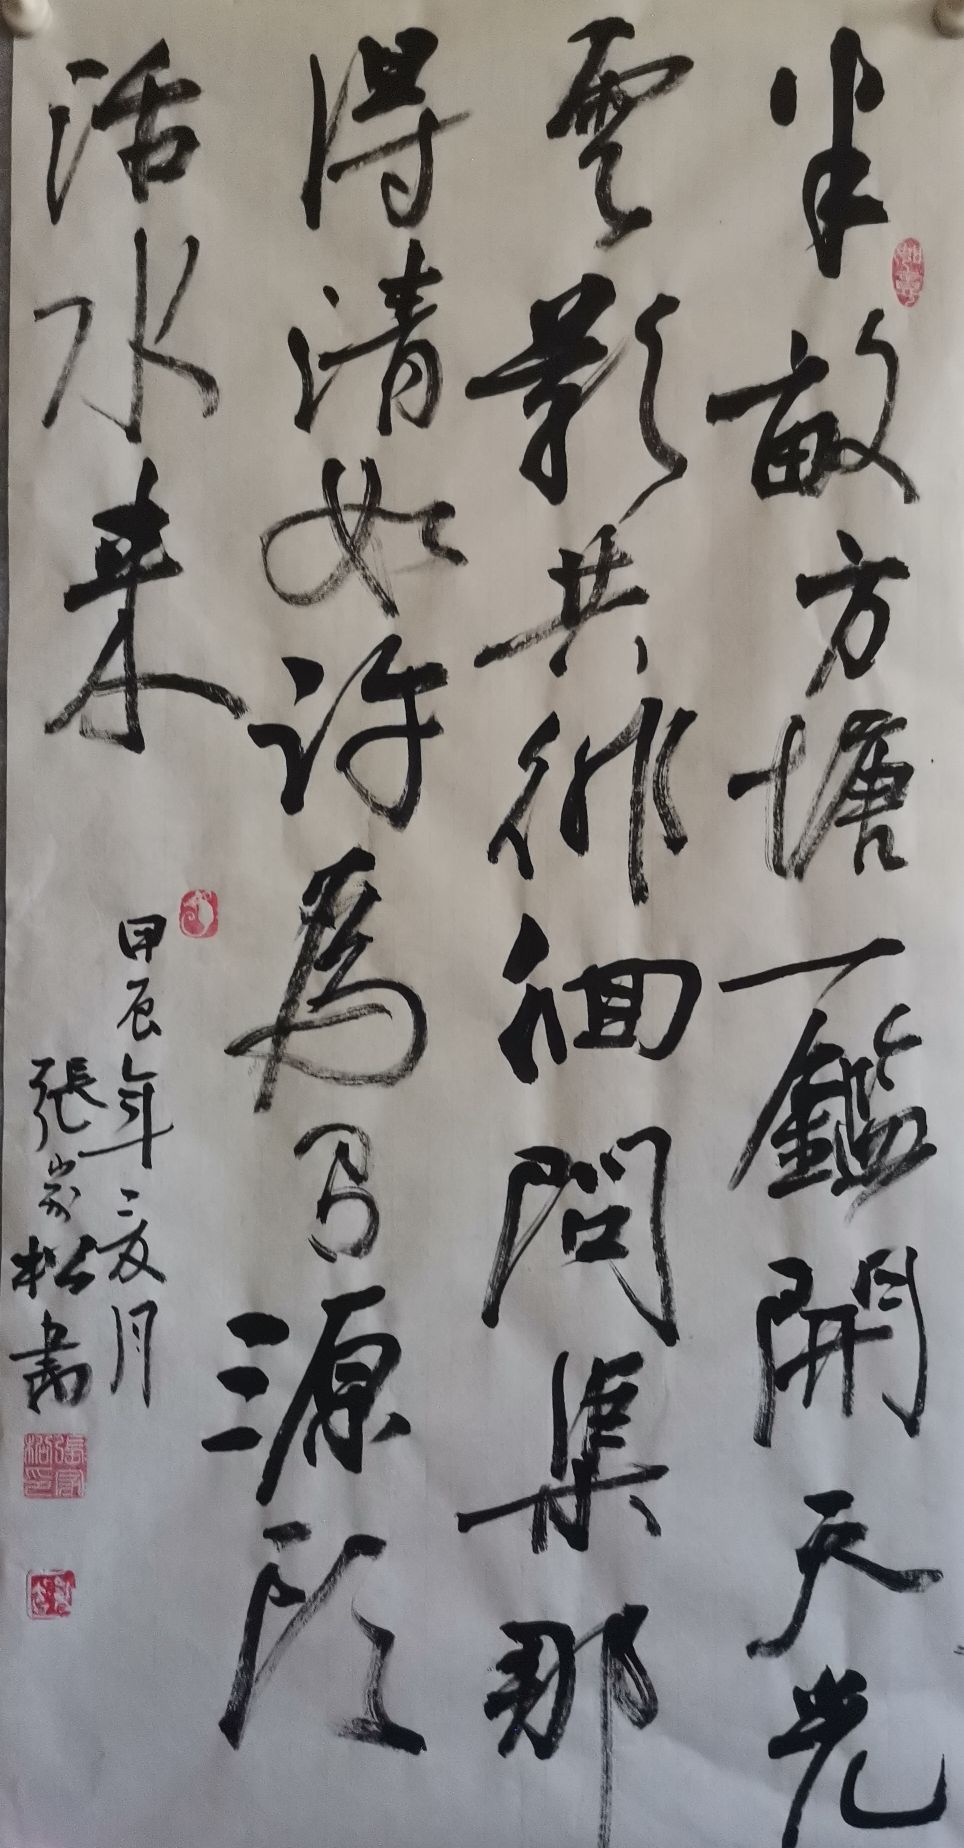 半畝方塘一鑑開天光
雲影共徘徊問渠那
得清如許為有源頭
活水来
甲辰年月
張家松書
張家松印